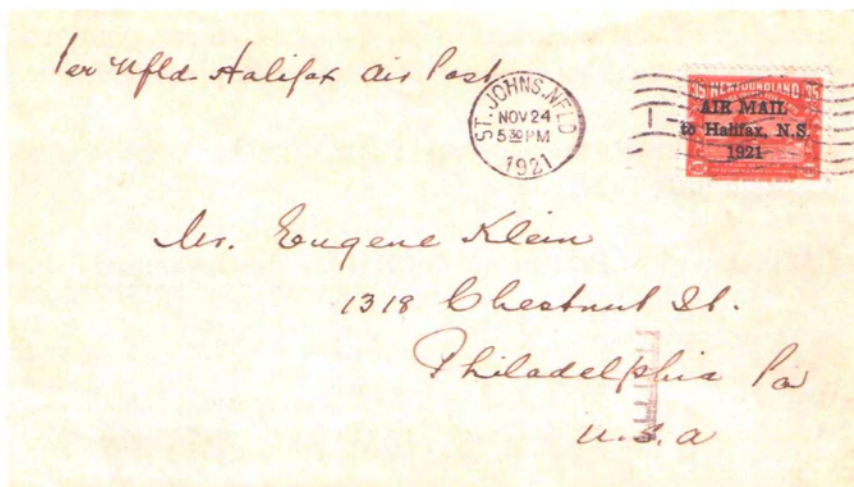 Per Nfld. Halifax Air Post
ST. JOHNS, NFLD
NOV 24
5 30 PM
1921
1
35 NEWFOUNDLAND 35
AIR MAIL
to Halifax, N.S.
1921
Mr. Eugene Klein
1318 Chestnut St.
Philadelphia Pa
U.S.A